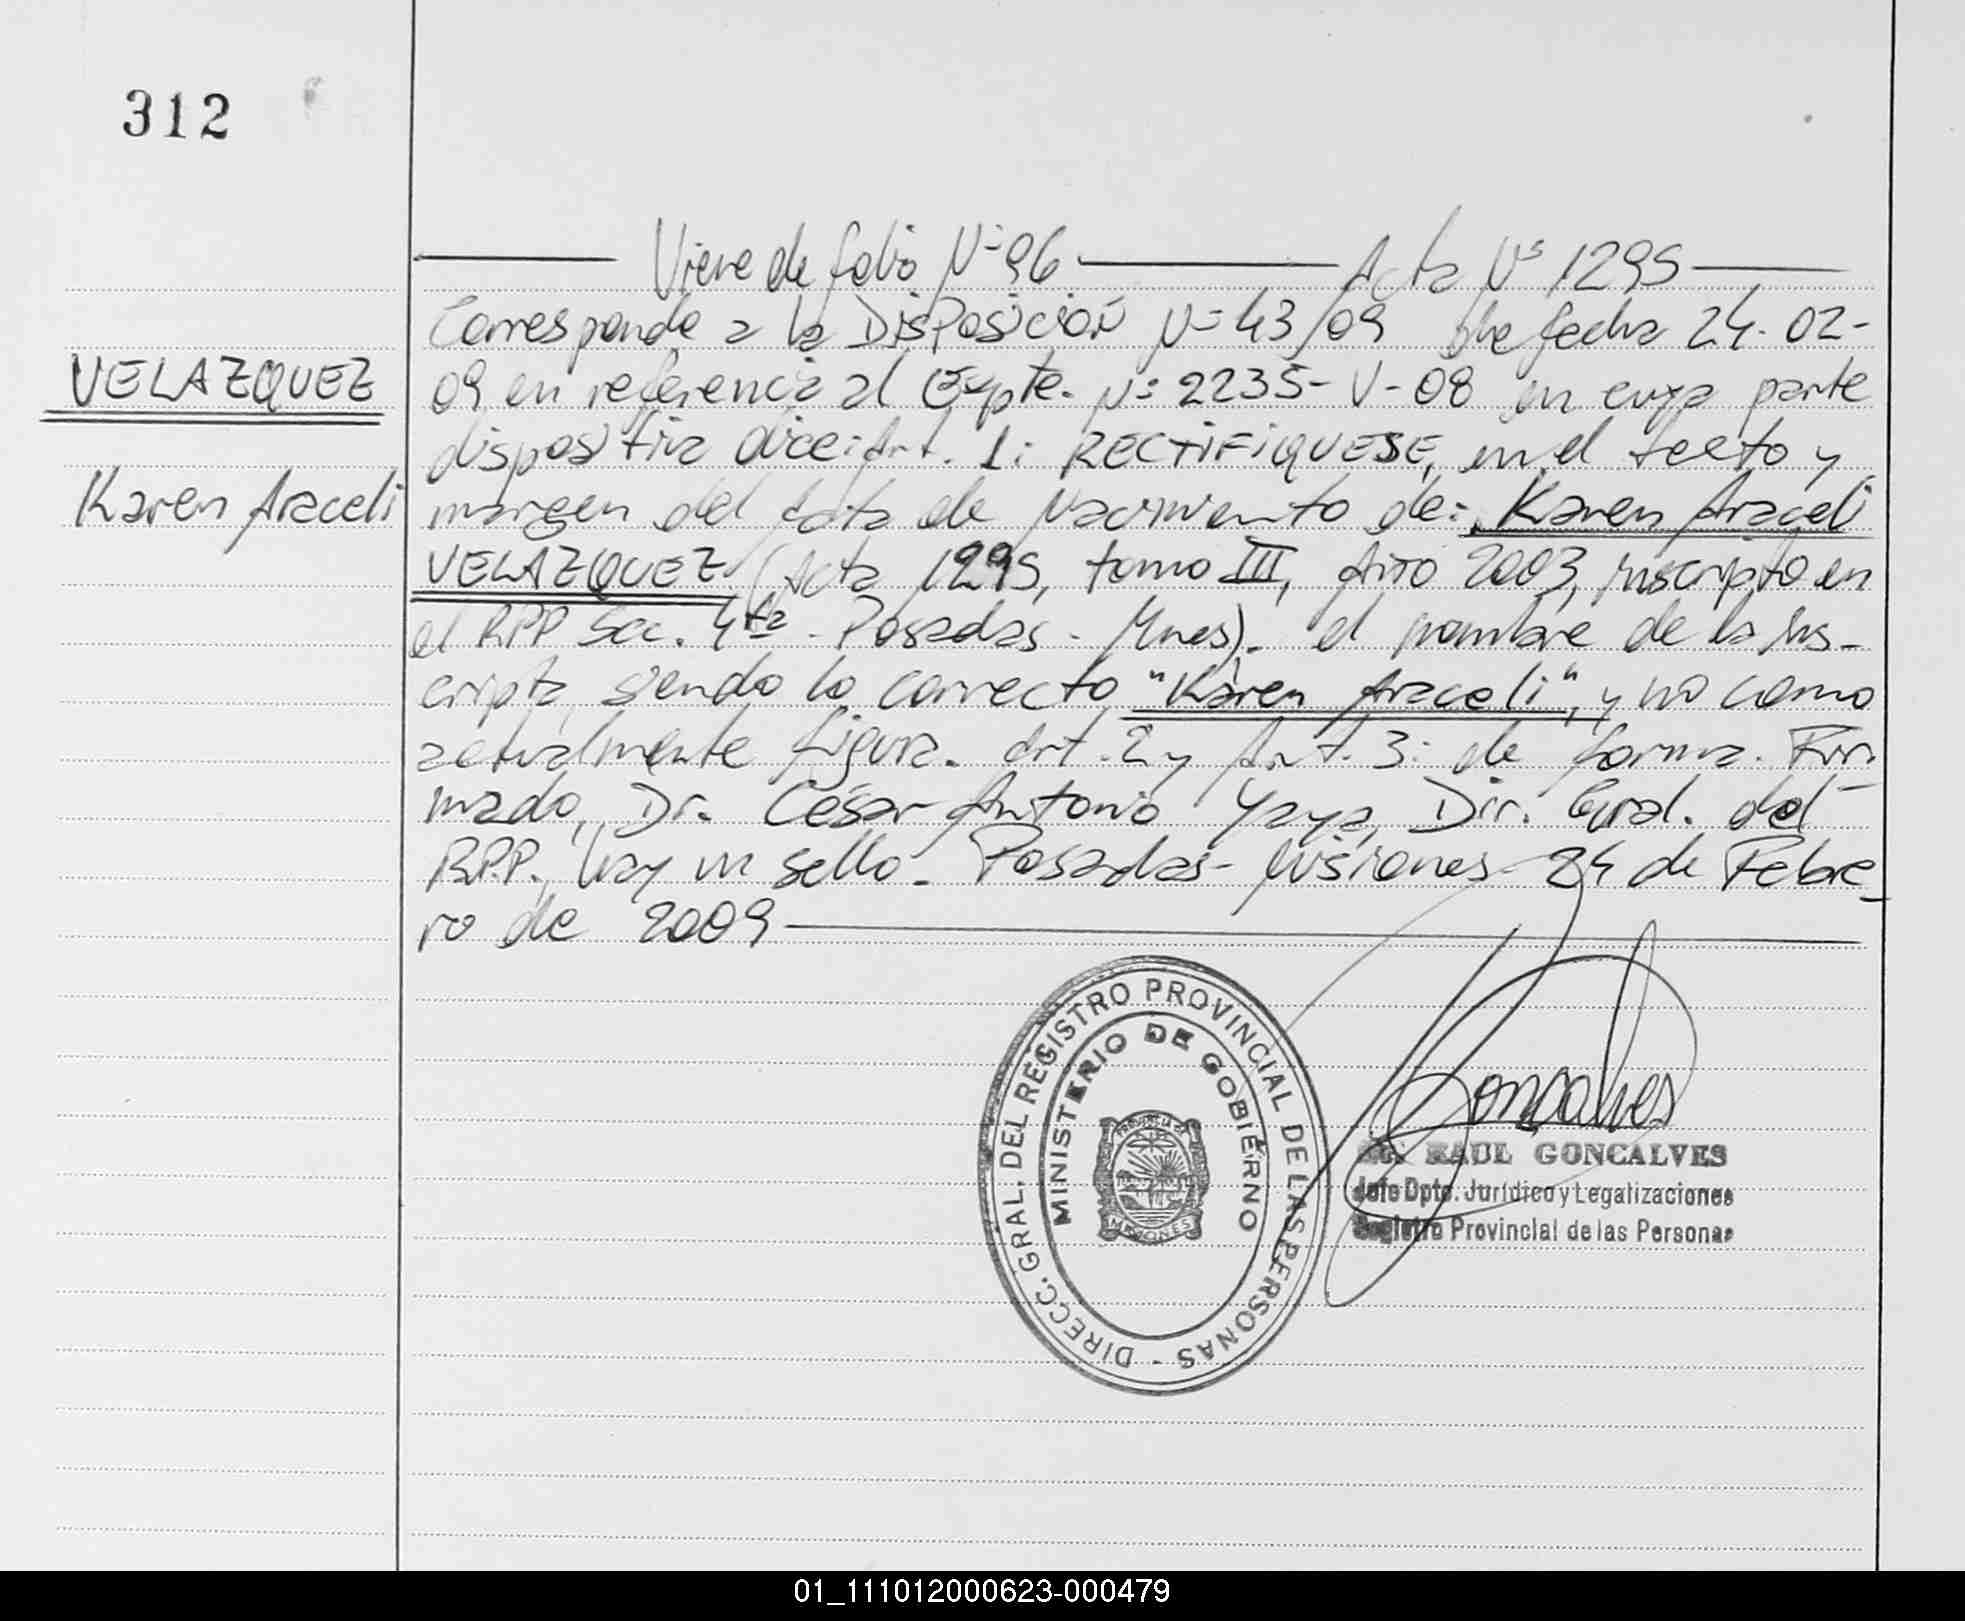 312
Viene de folio Nº 96 Acta Nº 1295
Corresponde a la DISPOSICIÓN Nº 43/09 de fecha 24-02-
VELAZQUEZ
09 en referencia al Expte. Nº 2235-V-08 en cuya parte
dispositiva dice: Art. 1: RECTIFIQUESE, en el texto y
Karen Araceli
margen del Acta de Nacimiento de: Karen Araceli
VELAZQUEZ (Acta 1295, tomo III, Año 2003, inscripto en
el RPP Sec. 4ta - Posadas - Mnes). el nombre de la ins-
cripta, siendo lo correcto "Karen Araceli", y no como
actualmente figura. Art. 2 y Art. 3: de forma. Fir-
mado, Dr. César Antonio Yaya, Dir. Gral. del
R.P.P., hay un sello. Posadas - Misiones 24 de Febre-
ro de 2009
DIRECC. GRAL. DEL REGISTRO PROVINCIAL DE LAS PERSONAS -
MINISTERIO DE GOBIERNO
PROVINCIA DE
MISIONES
Goncalves
RAUL GONCALVES
Jefe Dpto. Jurídico y Legalizaciones
Registro Provincial de las Personas
01_111012000623-000479